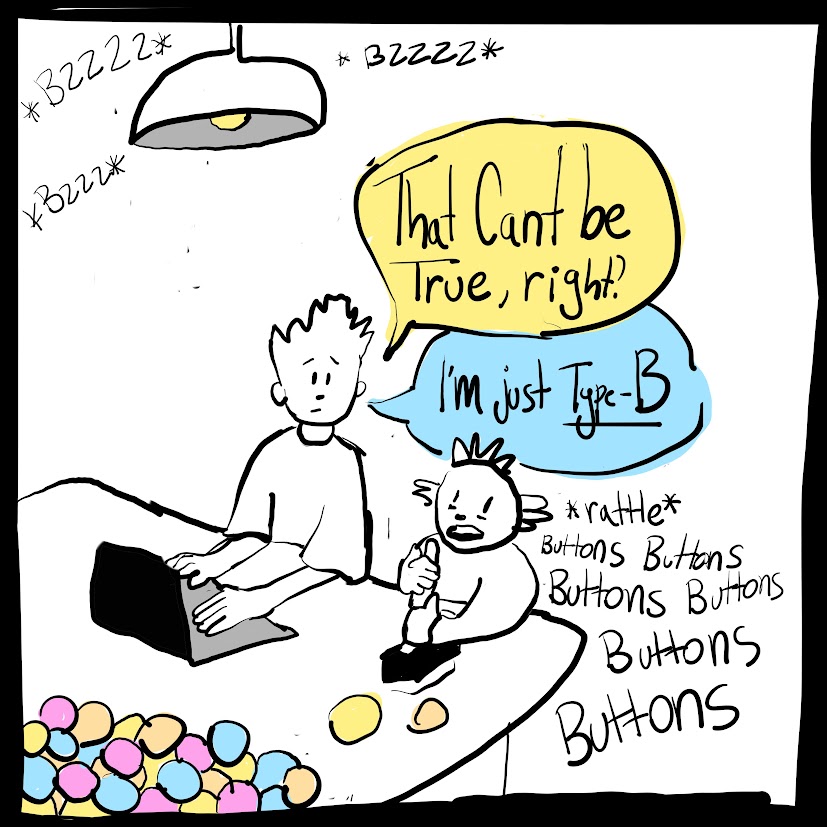 *BZZZZ*
* BZZZZ*
*BZZZ*
That Cant be
True, right?
I'm just Type-B
*rattle*
Buttons Buttons
Buttons Buttons
Buttons
Buttons